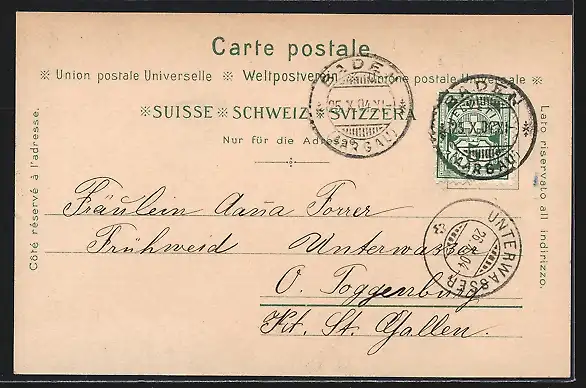 Carte postale.
※ Union postale Universelle ※ Weltpostverein ※ Unione postale Universale ※
※ SUISSE ※ SCHWEIZ ※ SVIZZERA ※
Nur für die Adresse.
Côté réservé à l'adresse.
Lato riservato all indirizzo.
BADEN
25.X.04.XI-
(AARGAU)
BADEN
25.X.04.XI-
(AARGAU)
UNTERWASSER
26.X.04
Fräulein Anna Forrer
Frühweid Unterwasser
O. Toggenburg
Kt. St. Gallen.